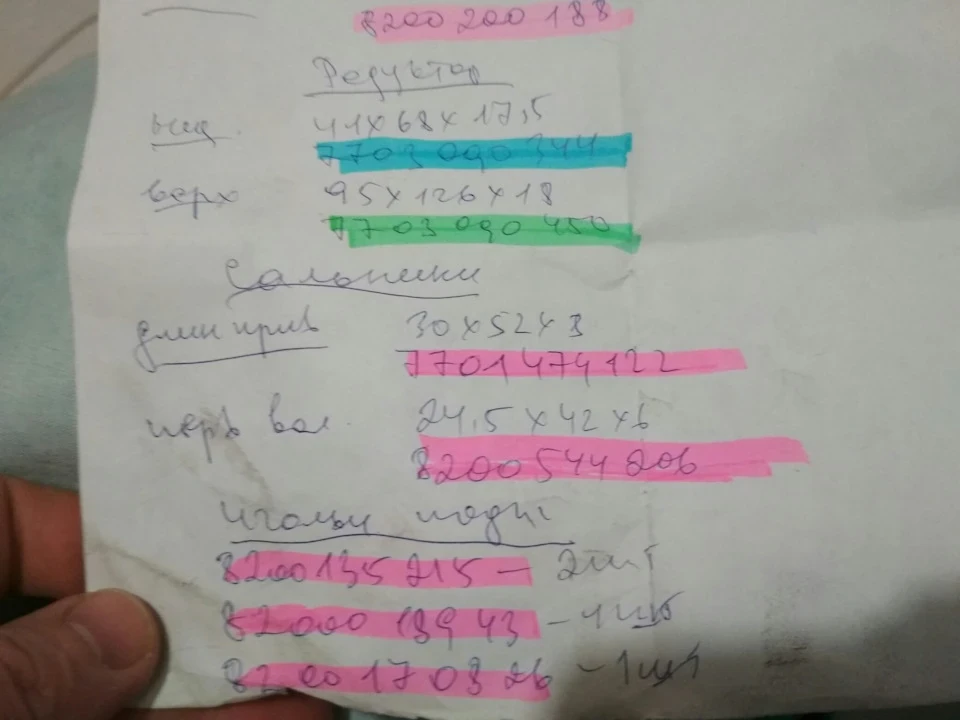 8200 200 188
Редуктор
41х68х17,5
7703 090 344
верх 95х126х18
7703 090 450
Сальники
длин прив 30х52х8
7701 474 122
перв вал. 24,5х42х6
8200 544 206
Игольч подш
8200 135 215 – 2шт
82000 189 43 – 1шт
8200 170 826 – 1шт